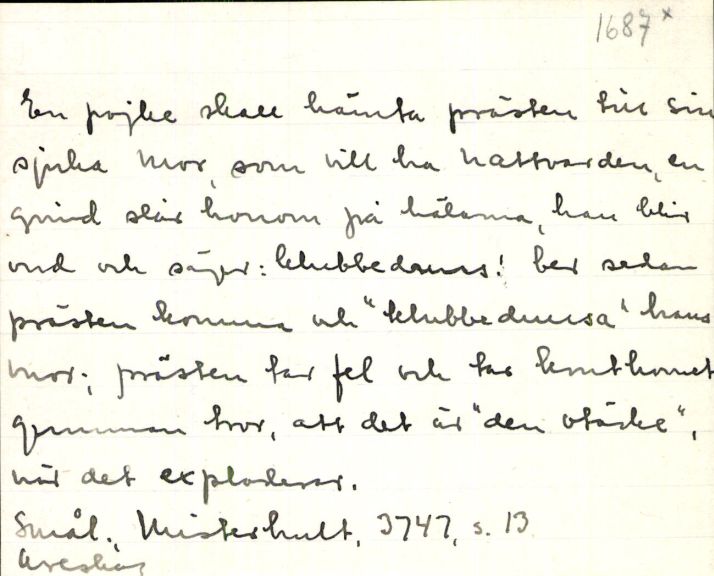 1687 x
En pojke skall hämta prästen till sin
sjuka mor, som vill ha nattvarden, en
grind slår honom på hälarna, han blir
ond och säger: klubbeduns! ber sedan
prästen komma och "klubbedunsa" hans
mor; prästen tar fel och tar kruthornet
gumman tror, att det är "den otäcke",
när det exploderar.
Smål., Misterhult, 3747, s. 13